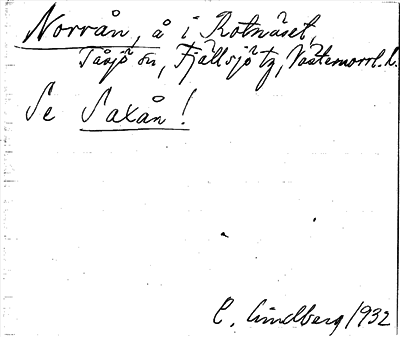 Norrån, å i Rotnäset,
Tåsjö sn, Fjällsjö tg, Västernorrl. l.
Se Saxån!
C. Lindberg 1932